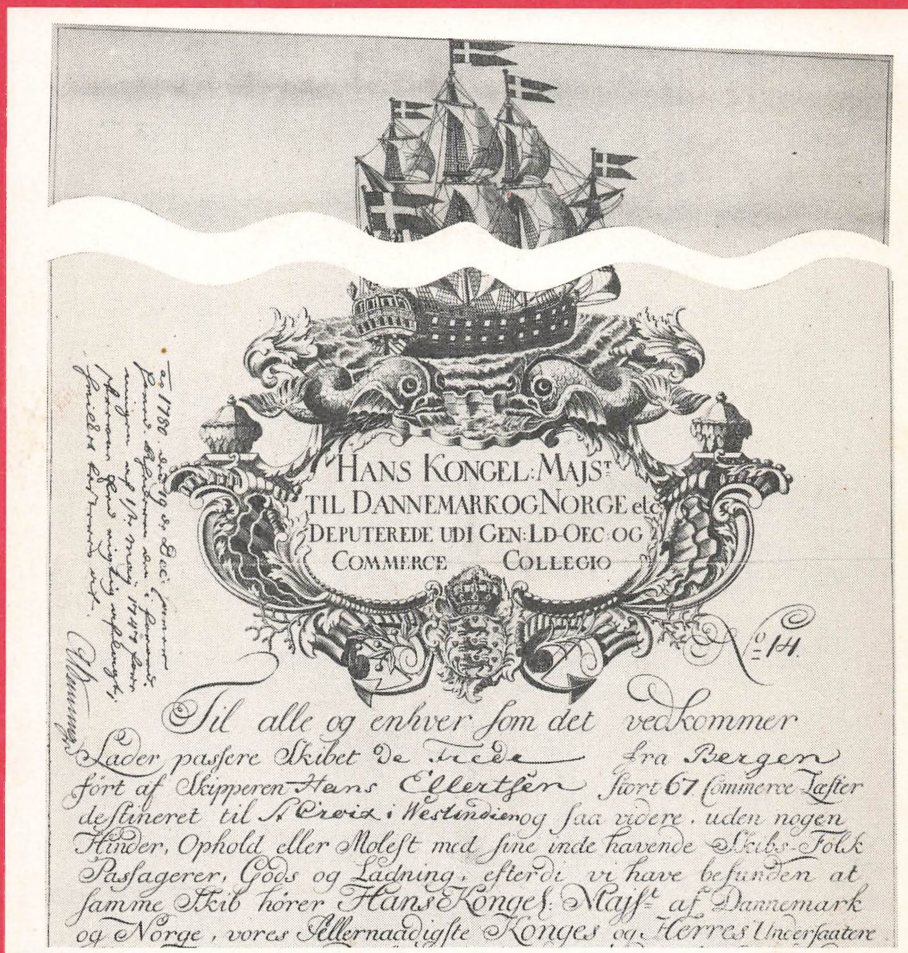 HANS KONGEL: MAJST
TIL DANNEMARK OG NORGE etc
DEPUTEREDE UDI GEN: LD-OEC: OG
COMMERCE COLLEGIO
No 14.
Til alle og enhver som det vedkommer
Lader passere Skibet De Frede fra Bergen
fört af Skipperen Hans Ellertsen stort 67 Commerce Læster
destineret til St Croix i Westindien og saa videre, uden nogen
Hinder, Ophold eller Molest med sine inde havende Skibs-Folk
Passagerer, Gods og Ladning, efterdi vi have befunden at
samme Skib hörer Hans Kongel: Majst. af Dannemark
og Norge, vores Allernaadigste Konges og Herres Undersaatere
1780 den 19 de